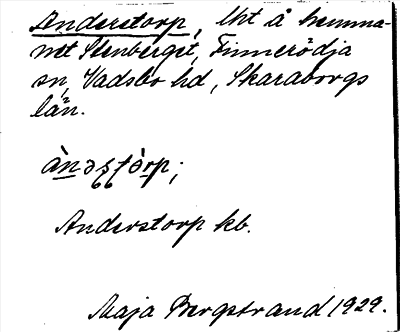 Anderstorp, lht å hemma-
net Stenberget, Finnerödja
sn, Vadsbo hd, Skaraborgs
län.
Anderstorp kb.
Maja Bergstrand 1929.